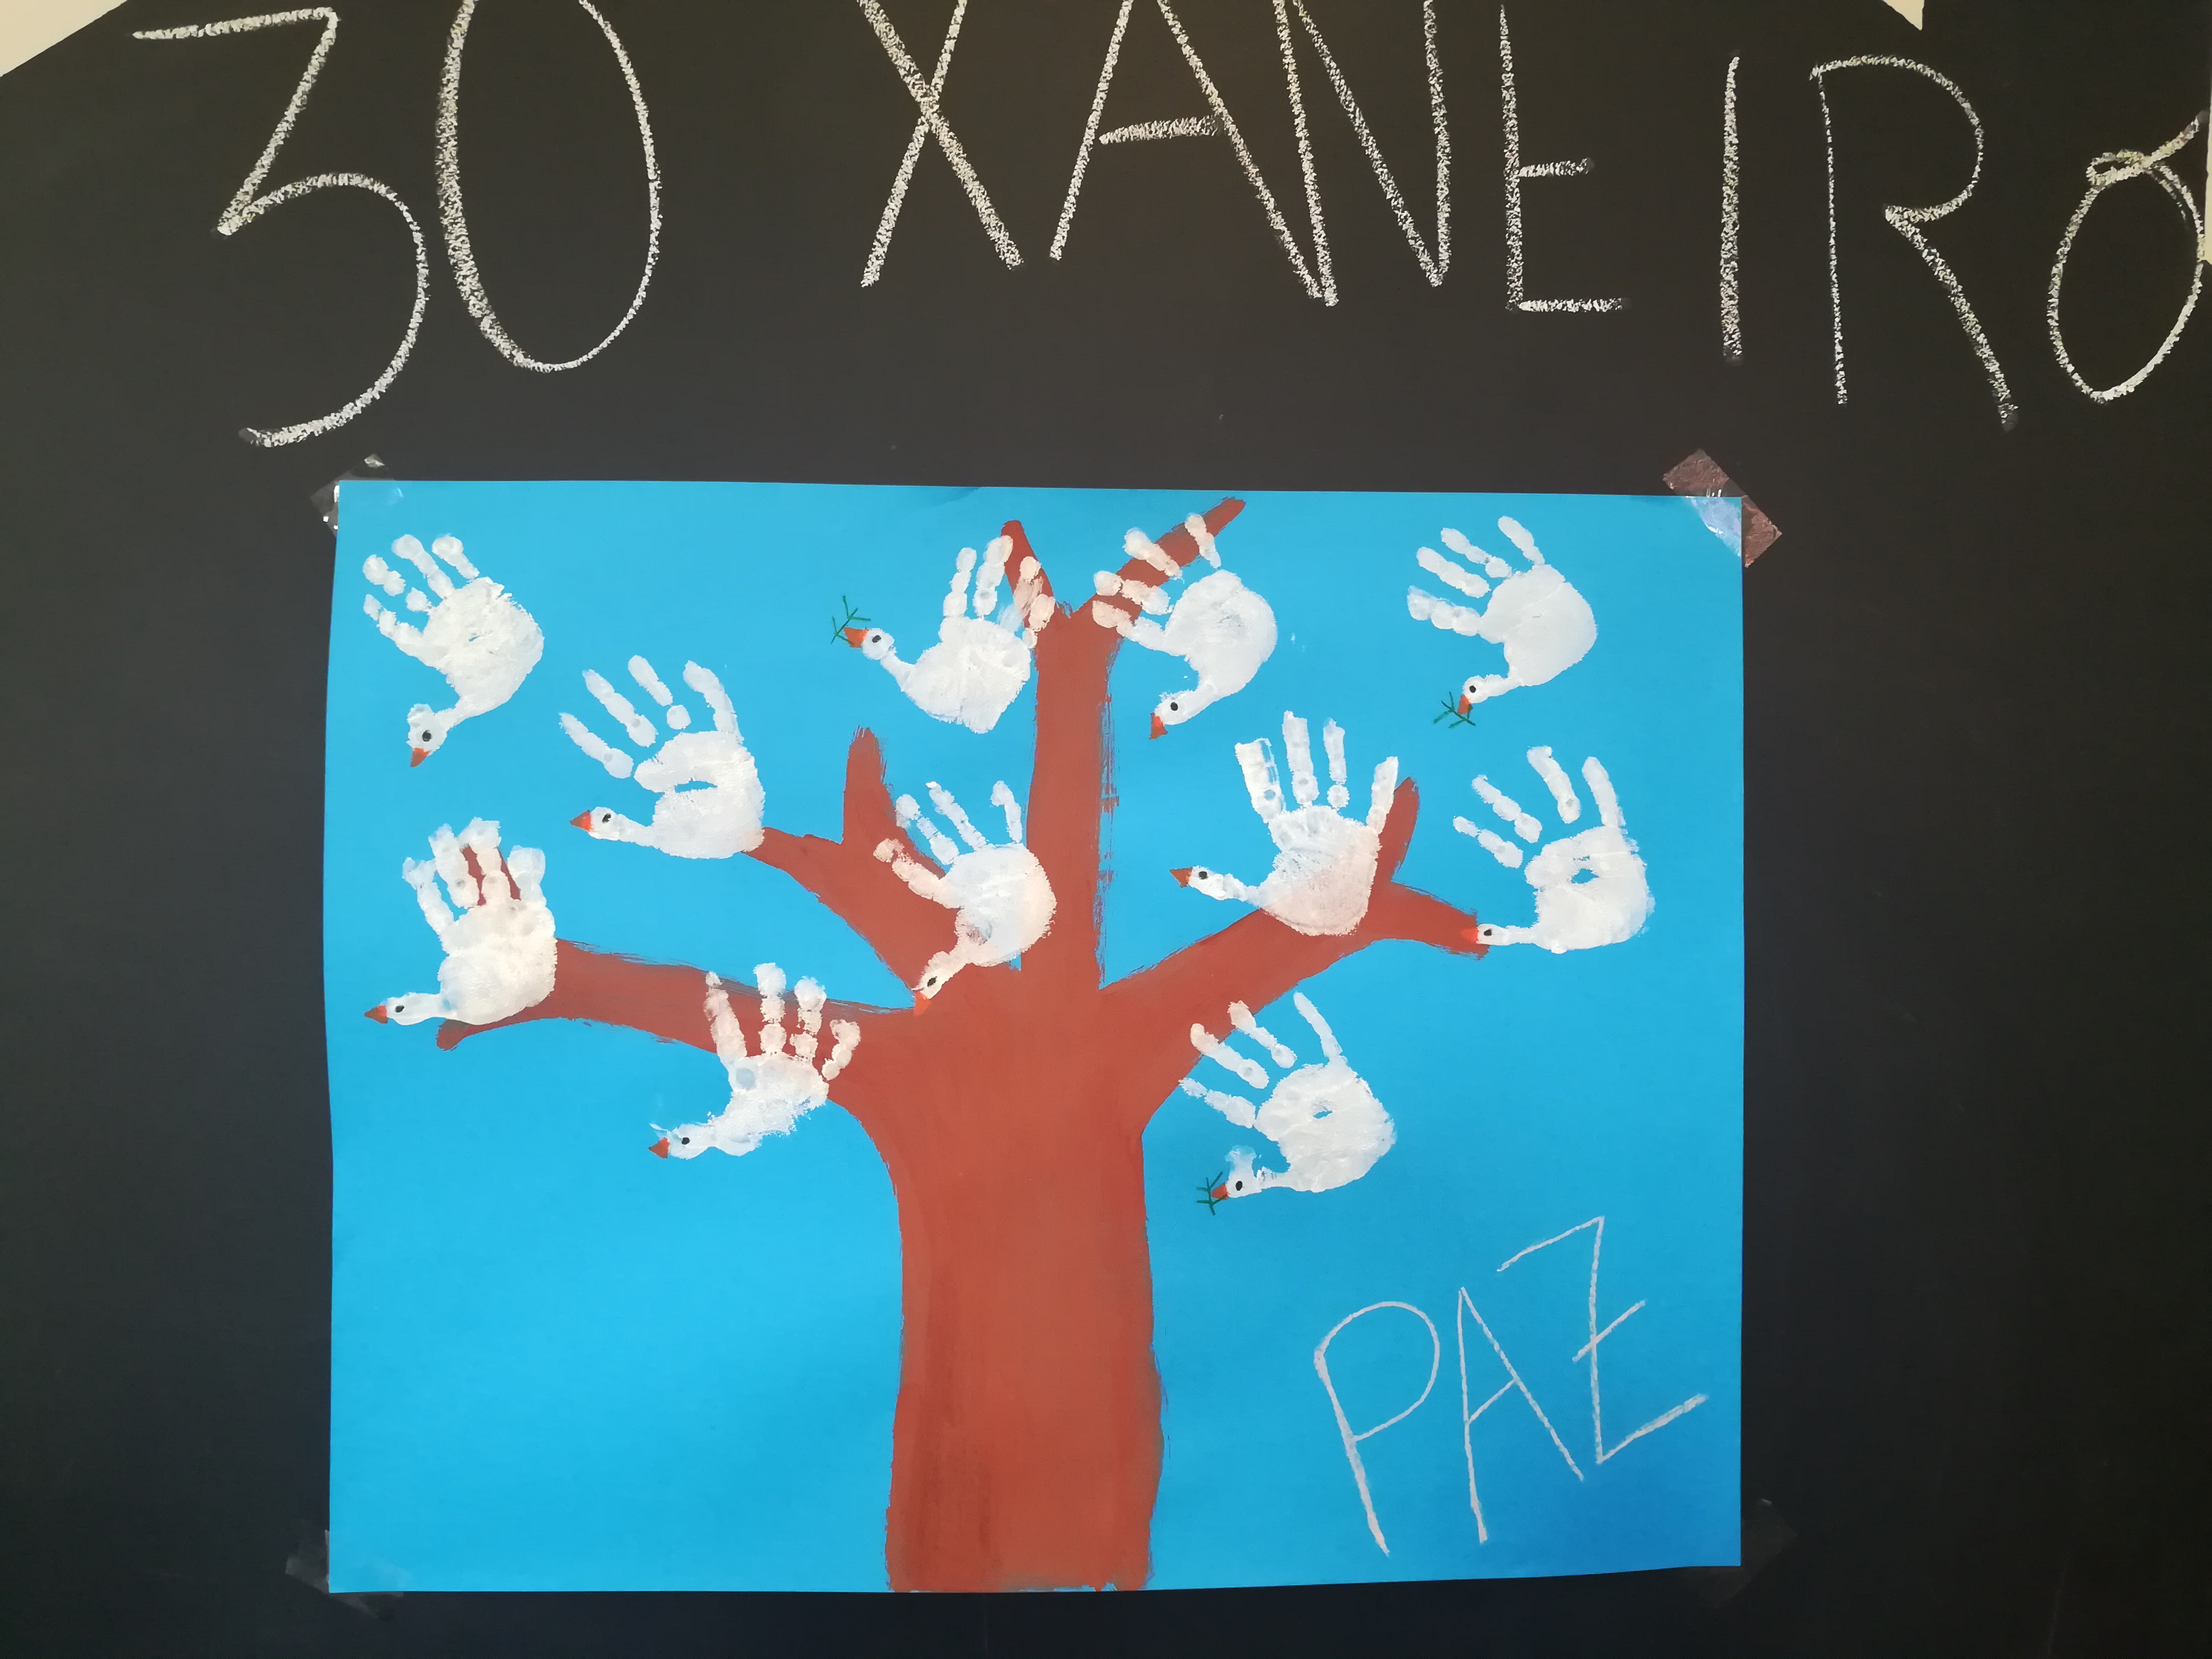 30 XANEIRO
PAZ